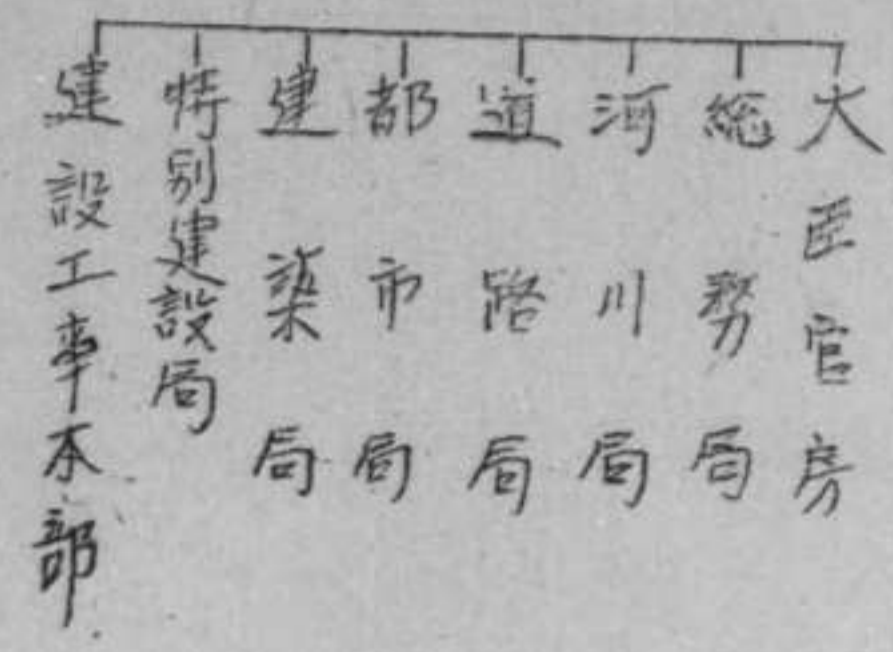 大臣官房
総務局
河川局
道路局
都市局
建築局
特別建設局
建設工事本部